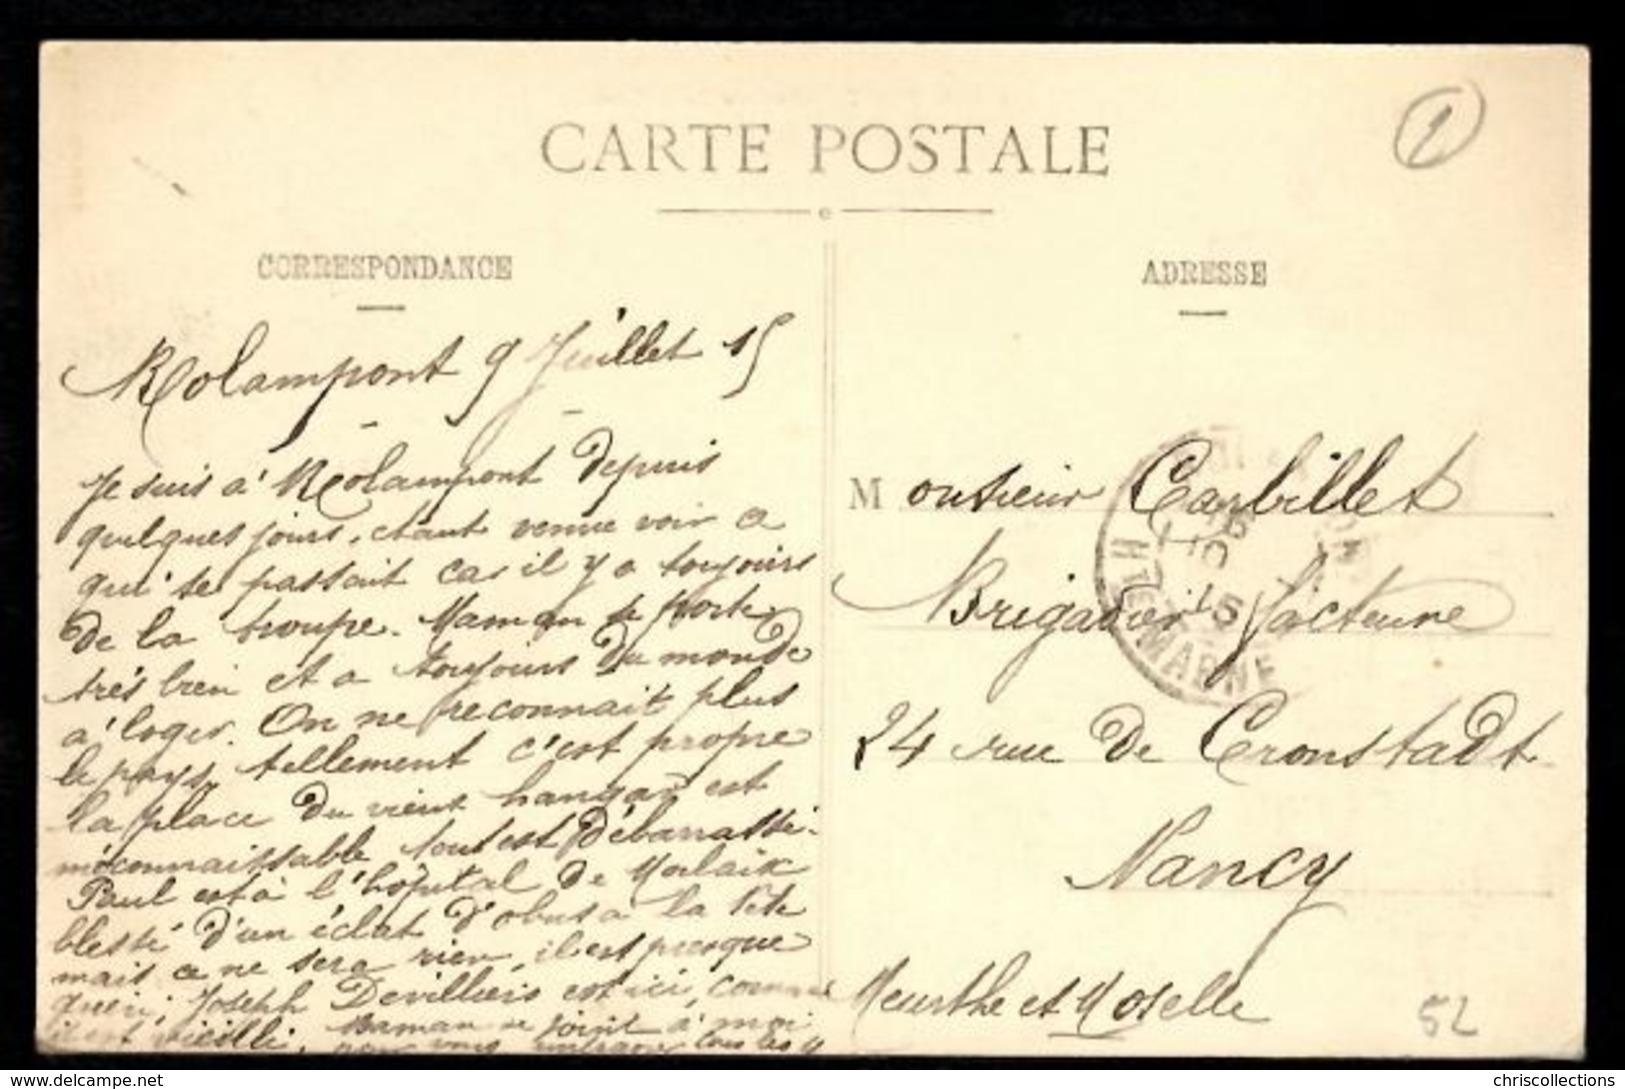 1
CARTE POSTALE
CORRESPONDANCE
Rolampont 9 Juillet 15
Je suis à Rolampont depuis
quelques jours, étant venue voir ce
qui se passait car il y a toujours
de la troupe. Maman se porte
très bien et a toujours du monde
à loger. On ne reconnait plus
le pays, tellement c'est propre
la place du vieux hangar est
méconnaissable tout est débarrassé.
Paul est à l'hôpital de Morlaix
blessé d'un éclat d'obus à la tête
mais ce ne sera rien, il est presque
guéri, Joseph Devilliers est ici, comme
il est vieilli, Maman se joint à moi
pour vous embrasser tous les 4
ADRESSE
Monsieur Carbillet
Brigadier facteur
24 rue de Cronstadt
Nancy
Meurthe et Moselle
HTE MARNE
52
chriscollections